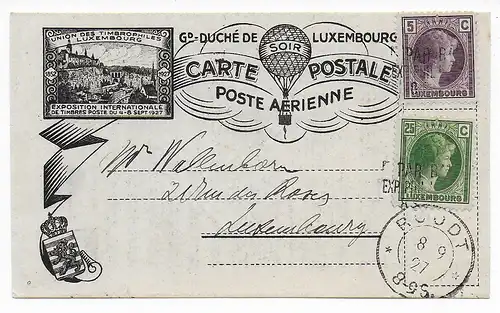 UNION DES TIMBROPHILES
LUXEMBOURG
1852 1927
EXPOSITION INTERNATIONALE
DE TIMBRES POSTE DU 4-8 SEPT. 1927
Gᴰ-DUCHÉ DE LUXEMBOURG
SOIR
CARTE POSTALE
POSTE AÉRIENNE
5 C
LUXEMBOURG
PAR BA
25 C
LUXEMBOURG
PAR B
EXP
Mr Wallenborn
21 rue des Roses
Luxembourg
ROODT
8 9
27
8-9S.